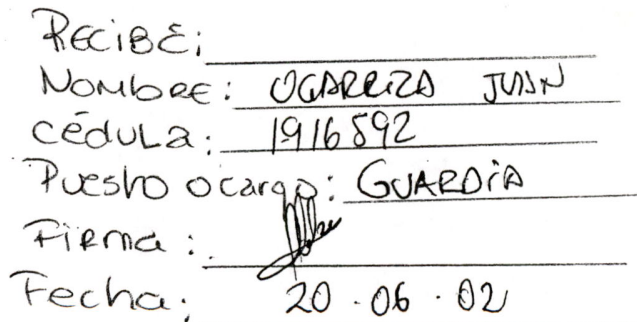 Recibe:
Nombre: OGARRIZA JUAN
cédula: 1916592
Puesto o cargo: GUARDIA
Firma:
Fecha: 20.06.02